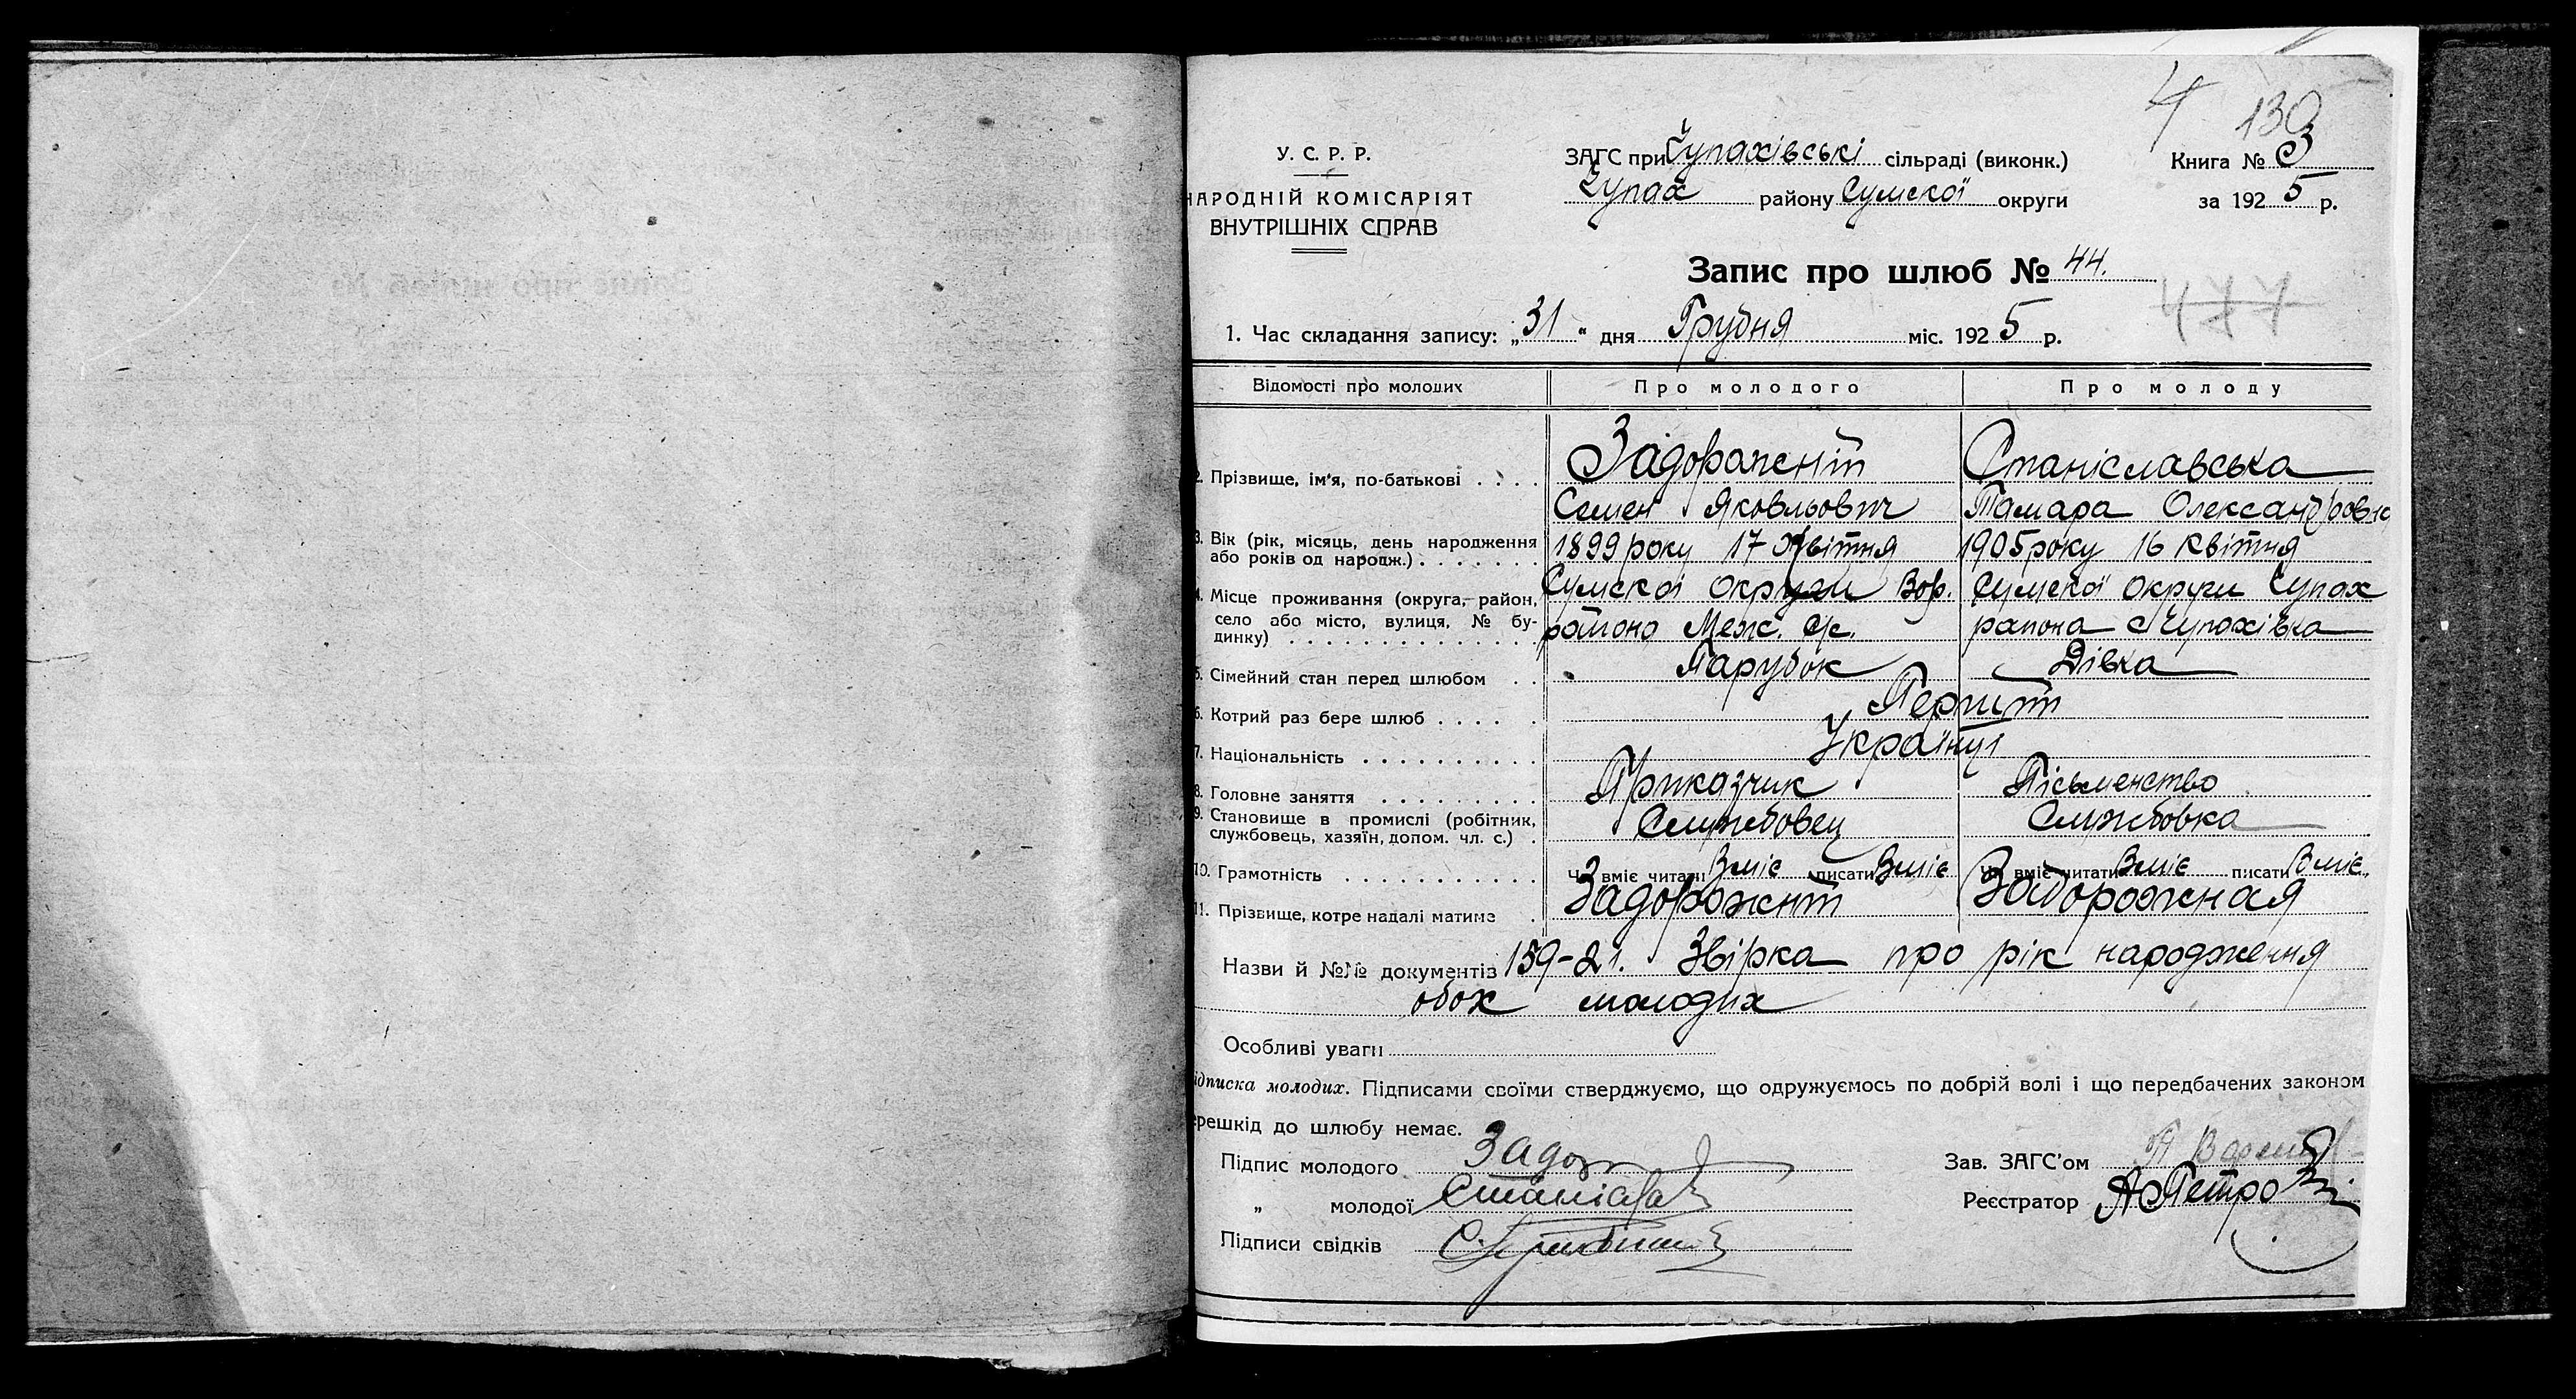 4 130
У. С. Р. Р.
НАРОДНІЙ КОМІСАРІЯТ
ВНУТРІШНІХ СПРАВ
ЗАГС при Чупахівські сільраді (виконк.)
Чупах району Сумскої округи
Книга № 3
за 1925 р.
Запис про шлюб № 44.
477
1. Час складання запису: „31“ дня Грудня міс. 1925 р.
Відомості про молодих Про молодого Про молоду
2. Прізвище, ім'я, по-батькові . . . . Задорожній Станіславська
Семен Яковльович Тамара Олександровна
3. Вік (рік, місяць, день народження або років од народж.) . . . . . . . 1899 року 17 Квітня 1905 року 16 Квітня
4. Місце проживання (округа, район, село або місто, вулиця, № будинку) . . . . . . . . . . . . . .
Сумскої округи Вор. Сумскої округи Чупах
района Меж. с/с. района с Чупахівка
5. Сімейний стан перед шлюбом . . Парубок Дівка
6. Котрий раз бере шлюб . . . . . Перший
7. Національність . . . . . . . . . . Українці
8. Головне заняття . . . . . . . . . Приказчик Пісьменство
9. Становище в промислі (робітник, службовець, хазяїн, допом. чл. с.) . Службовец Службовка
10. Грамотність . . . . . . . . . . . Чи вміє читати Вміє писати Вміє Чи вміє читати Вміє писати Вміє
11. Прізвище, котре надалі матиме . Задорожній Задорожная
Назви й №№ документів 159-21. Звірка про рік народження
обох молодих
Особливі уваги
ідписка молодих. Підписами своїми стверджуємо, що одружуємось по добрій волі і що передбачених законом
ерешкід до шлюбу немає.
Підпис молодого Задор
„ молодої Станіслав
Підписи свідків
Зав. ЗАГС'ом
Реєстратор АПетро